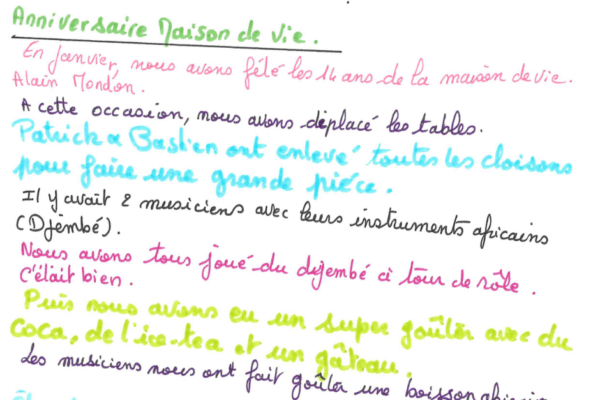 Anniversaire Maison de vie.
En Janvier, nous avons fêté les 14 ans de la maison de vie.
Alain Mondon.
A cette occasion, nous avons déplacé les tables.
Patrick & Bastien ont enlevé toutes les cloisons
pour faire une grande pièce.
Il y avait 2 musiciens avec leurs instruments africains
(Djembé).
Nous avons tous joué du djembé à tour de rôle.
C'était bien.
Puis nous avons eu un super goûter avec du
coca, de l'ice-tea et un gâteau.
Les musiciens nous ont fait goûter une boisson